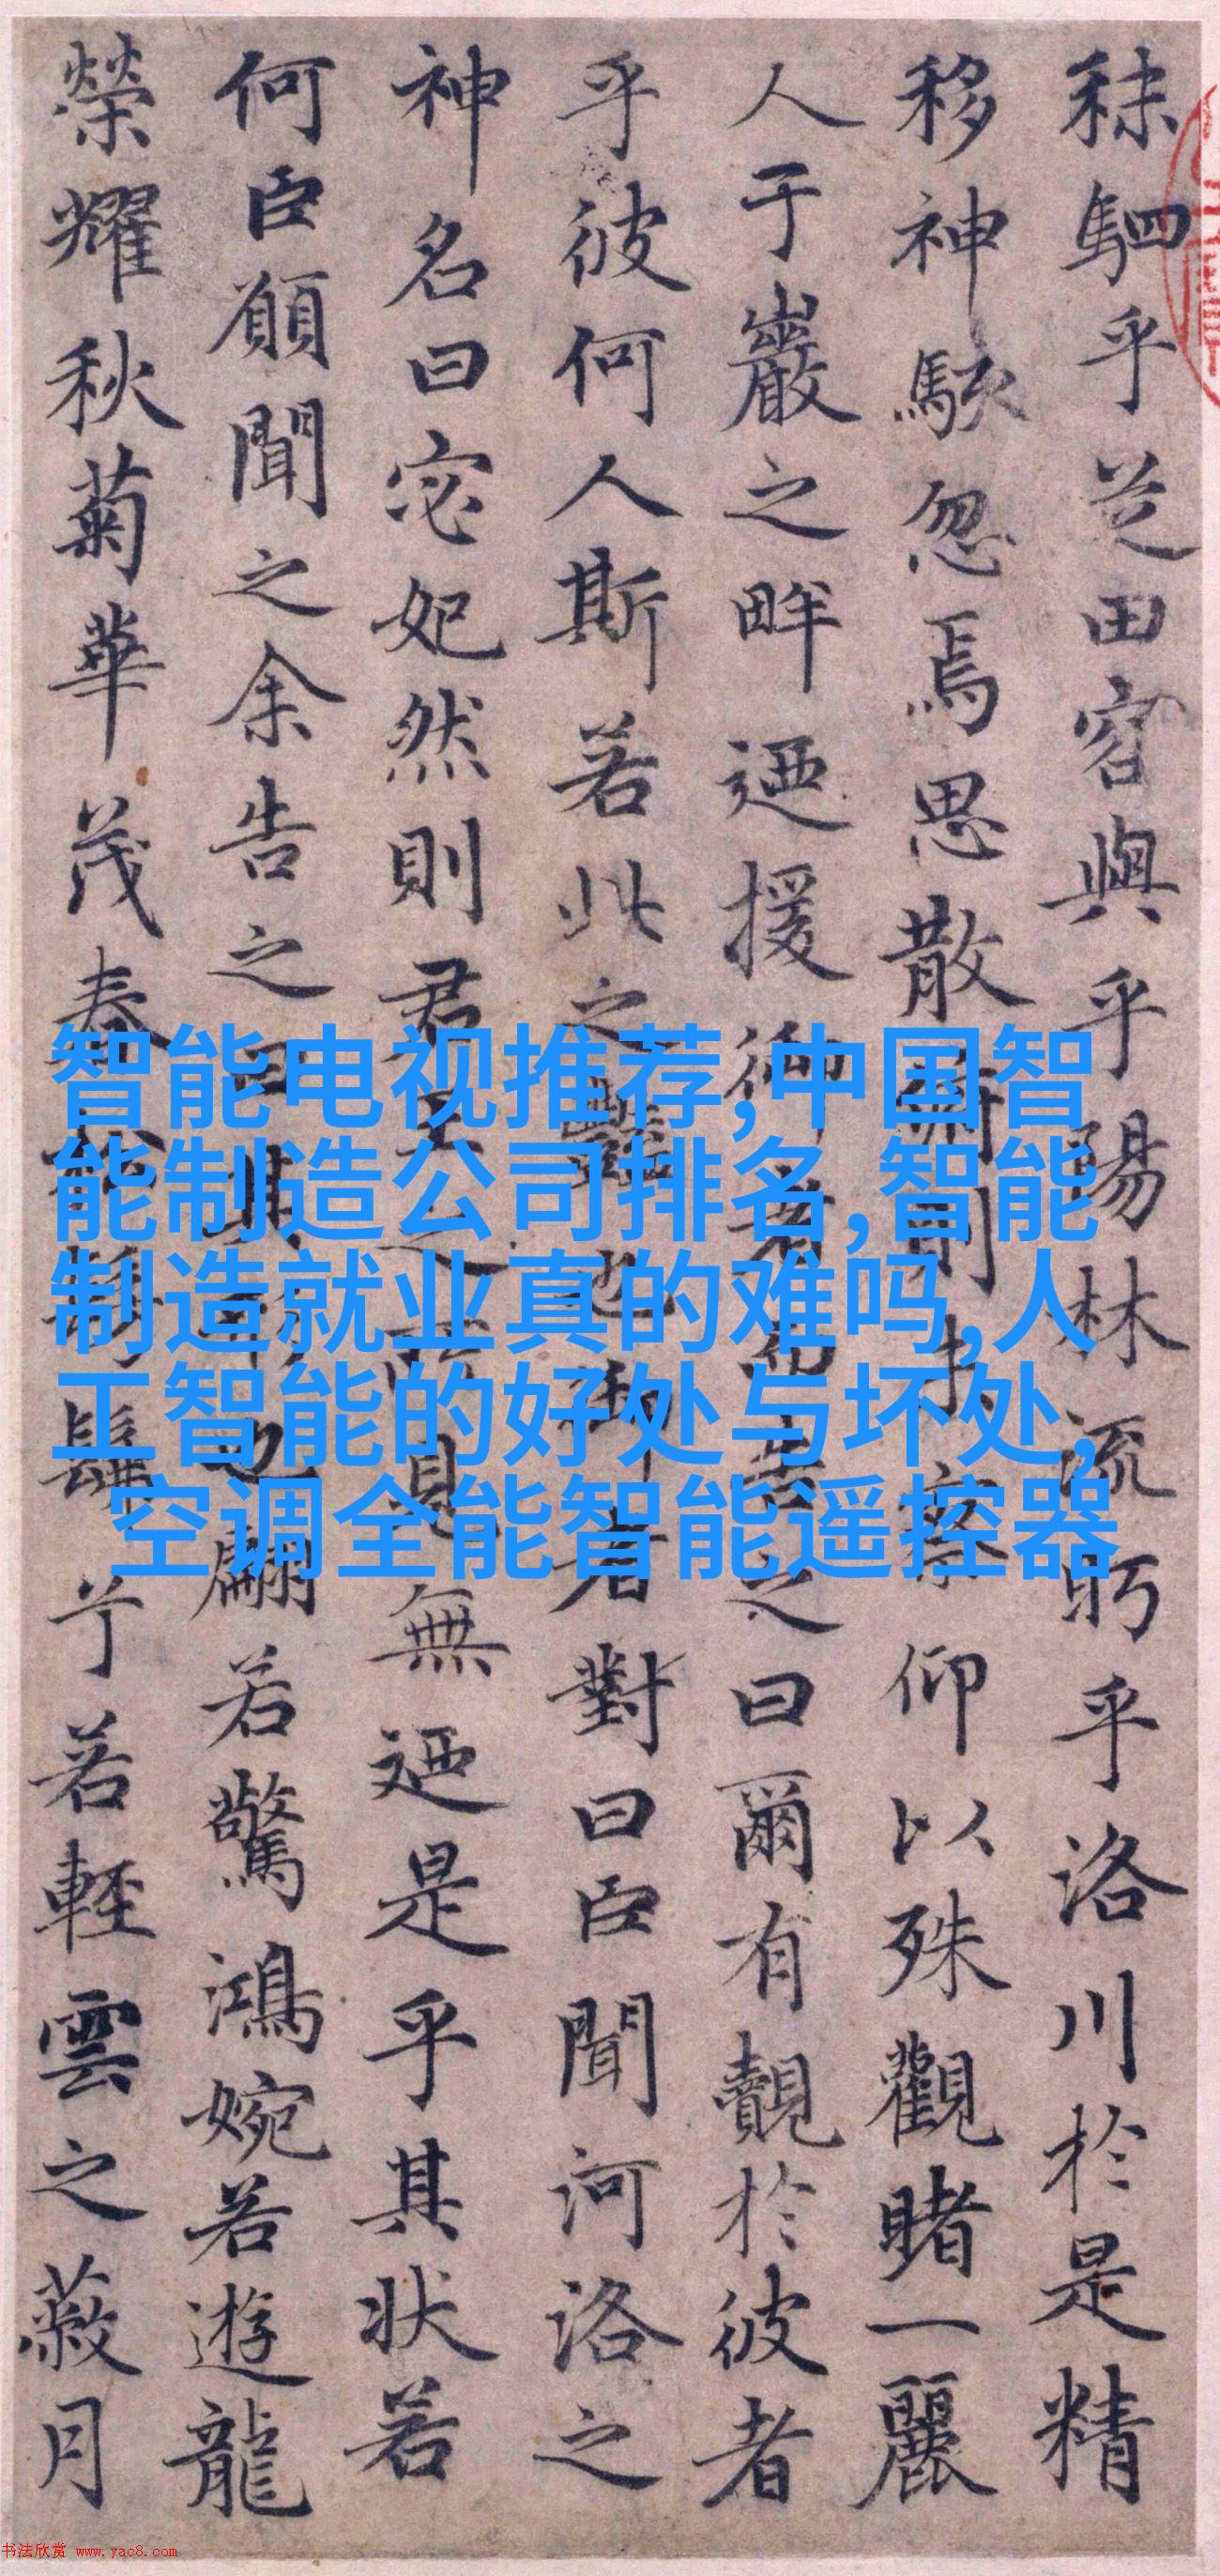 秣駟乎芝田容與乎陽林流眄乎洛川於是精
移神駭忽焉思散俯則未察仰以殊觀睹一麗
人于巖之畔迺援御者而告之曰爾有覿於彼者
乎彼何人斯若此之豔也御者對曰臣聞河洛之
神名曰宓妃然則君王之所見無迺是乎其状若
何臣願聞之余告之曰其形也翩若驚鴻婉若遊龍
榮耀秋菊華茂春松髣髴兮若輕雲之蔽月
智能电视推荐,中国智
能制造公司排名,智能
制造就业真的难吗,人
工智能的好处与坏处,
空调全能智能遥控器
书法欣赏 www.yac8.com